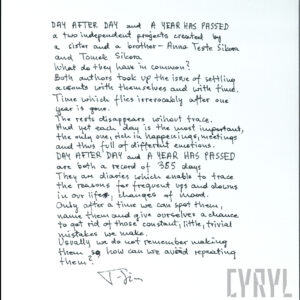 DAY AFTER DAY and A YEAR HAS PASSED
a two independent projects created by
a sister and a brother - Anna Teste Sikora
and Tomek Sikora.
What do they have in common?
Both authors took up the issue of settling
acounts with themselves and with time.
Time which flies irrevocably after one
year is gone.
The rests disappears wihout trace.
And yet each day is the most important,
the only one, rich in happenings, meetings
and thus full of different emotions.
DAY AFTER DAY and A YEAR HAS PASSED
are both a record of 365 days
They are diaries which enable to trace
the reasons for frequent ups and downs
in our life, changes of mood.
Only after a time we can spot them,
name them and give ourselves a chance
to get rid of those constant, little, trivial
mistakes we make.
Usually we do not remember making
them so how can we avoid repeating
them?
CYRYL